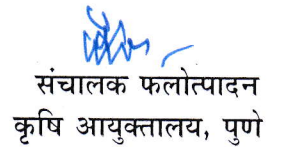 संचालक फलोत्पादन
कृषि आयुक्तालय, पुणे